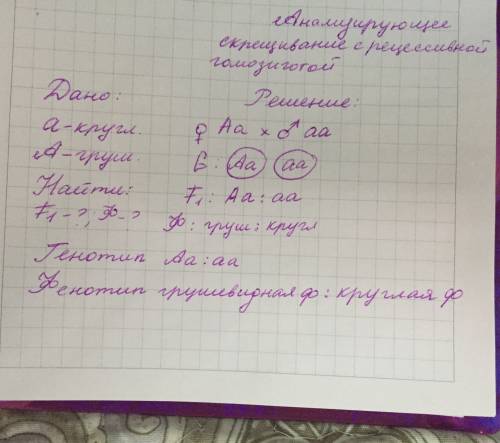 Анализирующее
скрещивание с рецессивной
гомозиготой
Дано: Решение:
а-кругл. ♀ Аа × ♂ аа
А-груш. G: Аа аа
Найти: F₁: Аа : аа
F₁-?, Ф-? Ф: груш : кругл
Генотип Аа : аа
Фенотип грушевидная ф : круглая ф